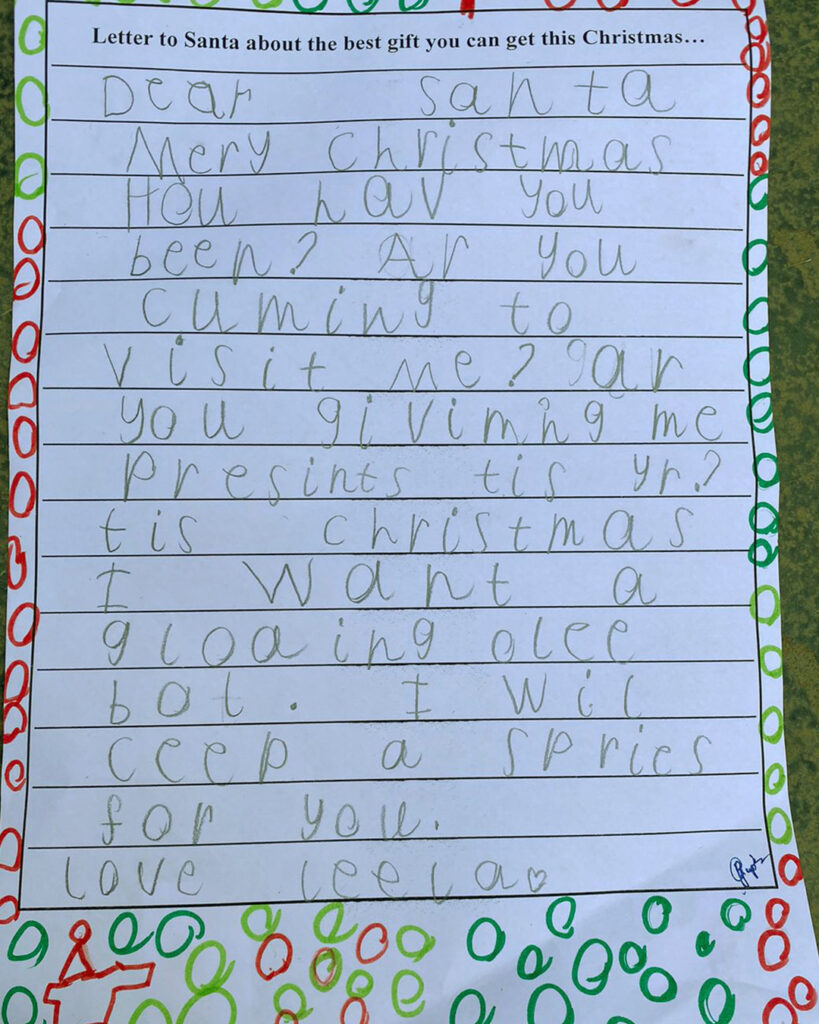 Letter to Santa about the best gift you can get this Christmas...
Dear Santa
Mery christmas
Hou hav you
been? Ar you
cuming to
visit me? ar
you givimng me
presints tis yr.?
tis christmas
I want a
gloaing olee
bot. I wil
ceep a spries
for you.
love leela